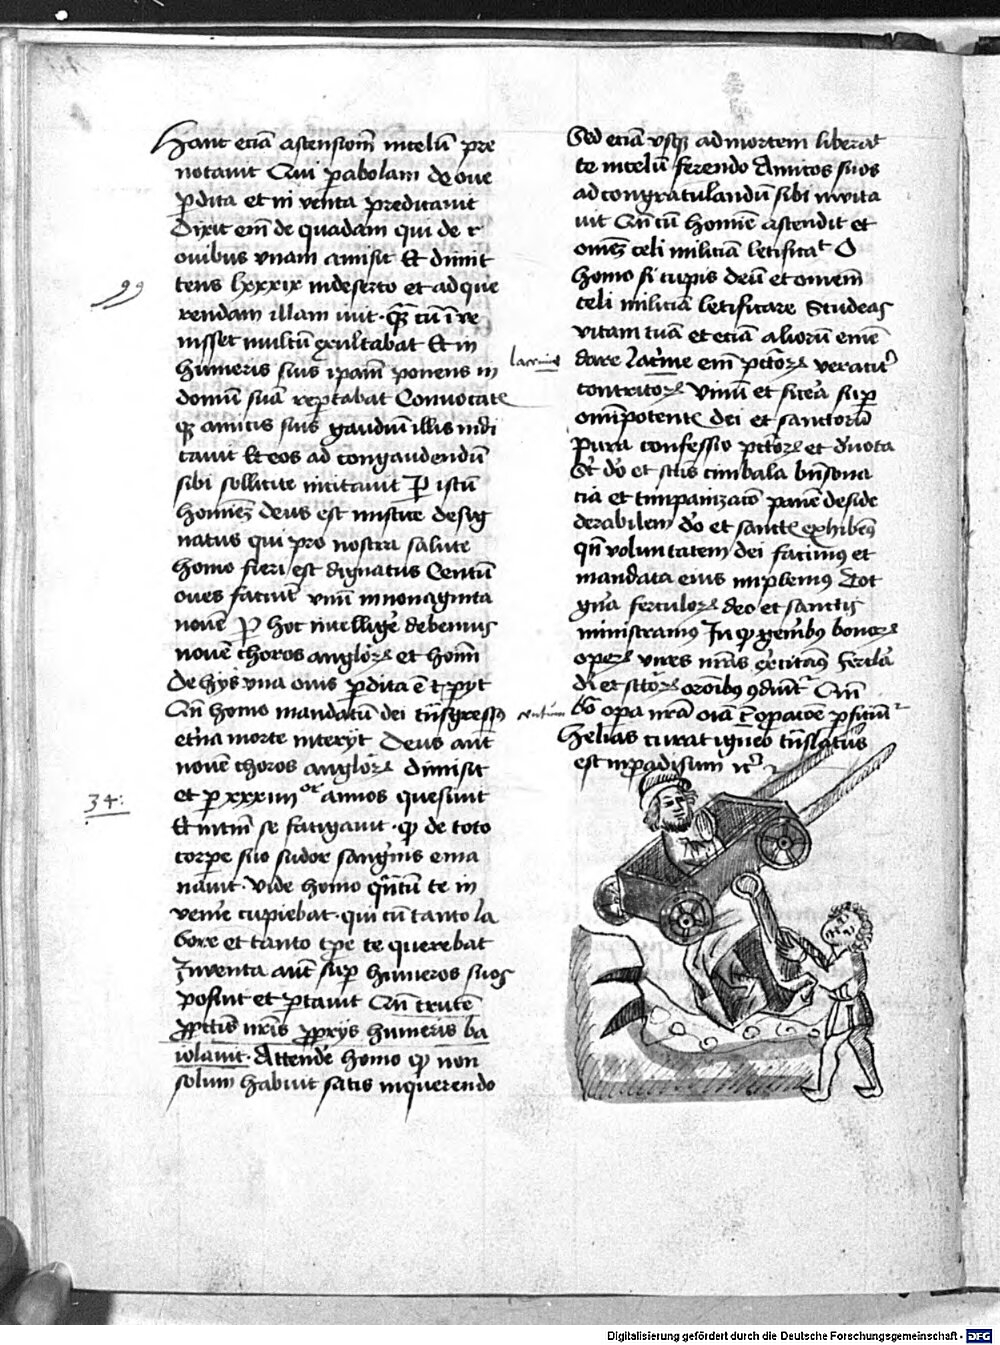 Hanc eciā ascensionē in celū pre
notauit Cū pabolam de oue
pdita et in venta predicauit
Dixit em̄ de quadam qui de c
ouibus vnam amisit Et dimit
tens lxxxxix in deserto et ad que
99
rendam illam iuit · Quā cū īve
nisset multū exultabat Et in
humeris suis ipam̄ ponens in
domū suā reportabat Conuocatis
qꝫ amicis suis gaudiū illis indi
cauit Et eos ad congaudendū
sibi sollicite incitauit Per istū
hominē deus est mistice desig
natus qui pro nostra salute
homo fieri est dignatus Centū
oues faciūt vnū in nonaginta
nouē Per hoc intelligē debemus
nouē choros angloꝝ et homī
De hijs vna ouis pdita ē et pijt
Cū homo mandatū dei tnsgressꝰ
eterna morte interijt Deus aut̄
nouē choros angloꝝ dimisit
et p xxxiij annos quesiuit
34:
Et intm̄ se fatigauit · qꝫ de toto
corpe suo sudor sanguinis ema
nauit · vide homo quātū te in
venire cupiebat · qui cū tanto la
bore et tanto tpe te querebat
Inuenta aut̄ sup humeros suos
posuit et portauit Cū crucē
pro pctis nris proprijs humeris ba
iolauit · Attende homo qꝫ non
solum habuit satis inquerendo
Sed eciā vsqꝫ ad mortem liberat
te in celū ferendo Amicos suos
ad congratulandū sibi invita
uit Cū cū homine ascendit et
omnē celi miliciā letificat O
homo si cupis deū et omnem
celi miliciā letificare Studeas
vitam tuā et eciā alioꝝ emē
lacrime
dare lacrime em̄ pctoꝝ veraciter
contritoꝝ vinū et sicera sūt
omnipotentis dei et sanctorū
Pura confessio pctoꝝ et deuota
Sūt deo et sctis cimbala bn̄sona
cia et timpanizacio panē deside
derabilem deo et sanctis exhibemꝰ
qn̄ voluntatem dei facimꝰ et
mandata eius implemꝰ Tot
gna ferculoꝝ deo et sanctis
ministramꝰ In qꝫ gen̄ibꝰ bonoꝝ
operꝝ vires nras exercitamꝰ
Helias curru igneo tnslatus
est in padisum